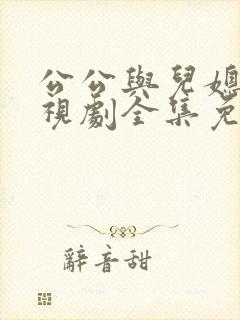 公公與兒媳
視劇全集免
辭音甜